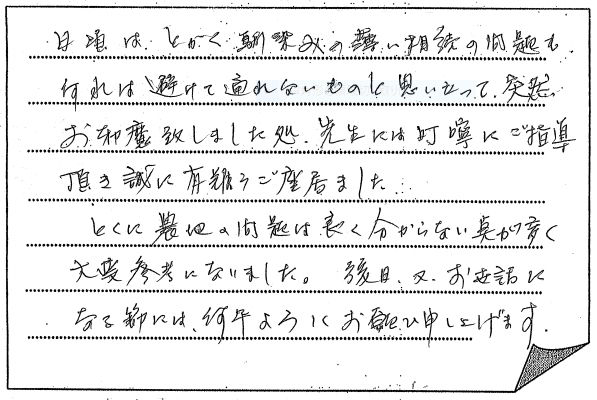 日頃は、とかく馴染みの薄い相続の問題も、
何れは避けて通れないものと思い立って、突然
お邪魔致しました処、先生には丁寧にご指導
頂き誠に有難うご座居ました。
とくに農地の問題は良く分からない点が多く
大変参考になりました。後日、又、お世話に
なる節には、何卒よろしくお願い申し上げます。